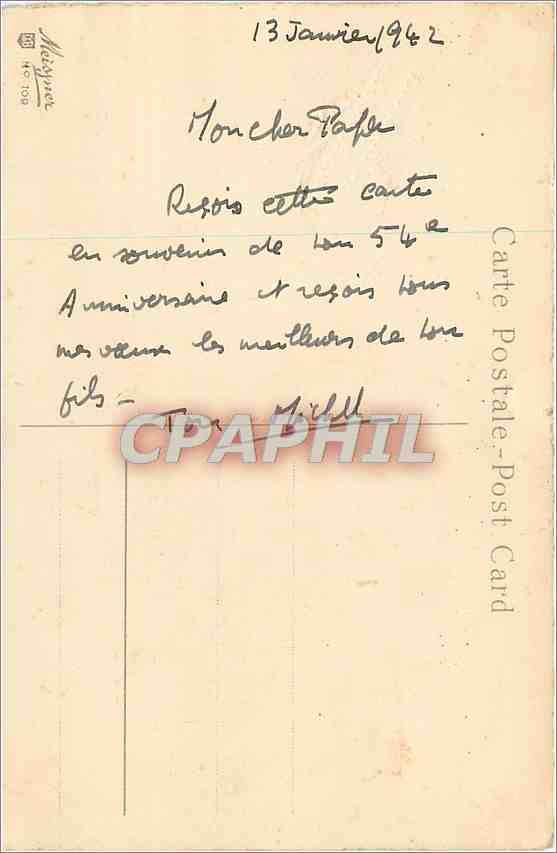 13 Janvier 1942
Mon cher Papa
Reçois cette carte
en souvenir de ton 54e
Anniversaire et reçois tous
mes vœux les meilleurs de ton
fils -
Ton Michel
CPAPHIL
Carte Postale.-Post Card
Meissner
No. 109